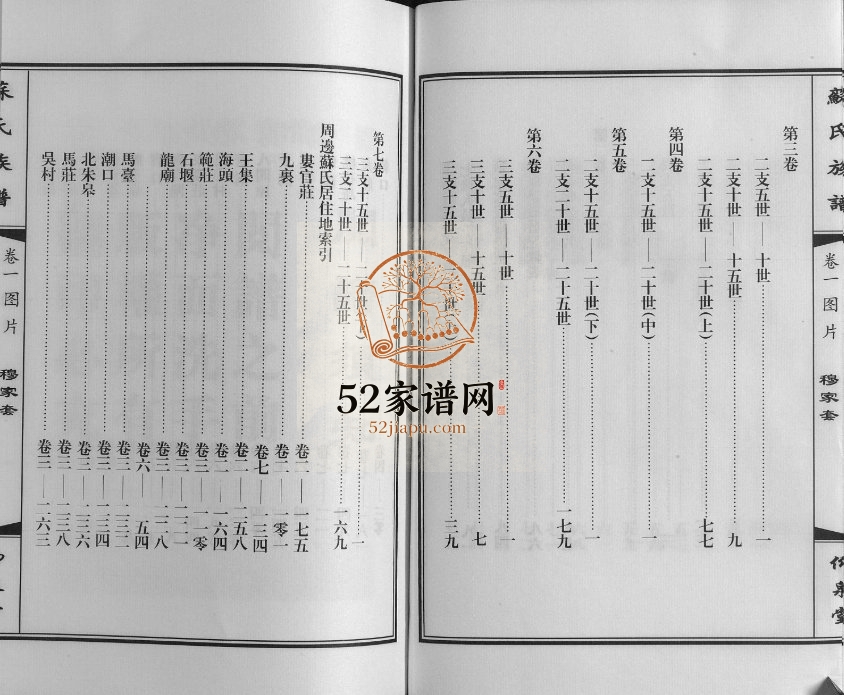 蘇氏族譜
卷一图片
穆家套
第三卷
二支五世——十世 一
二支十世——十五世 九
二支十五世——二十世(上) 七七
第四卷
二支十五世——二十世(中) 一
第五卷
二支十五世——二十世(下) 一
二支二十世——二十五世 一七九
第六卷
三支五世——十世 一
三支十世——十五世 七
三支十五世—— 三九
第七卷
三支十五世——二十世 一
三支二十世——二十五世 一六九
周邊蘇氏居住地索引
婁官莊 卷二——一七五
九裏 卷二——一零一
卷七——三四
王集 卷二——二五八
海頭 卷二——一六四
範莊 卷三——一一零
石堰 卷三——二二一
龍廟 卷三——二二八
卷六——五四
馬臺 卷三——二三二
潮口 卷三——二三四
北朱皋 卷三——二三六
馬莊 卷三——二三八
吳村 卷三——二六三
族譜
卷一图片
穆家套
52家谱网
52jiapu.com